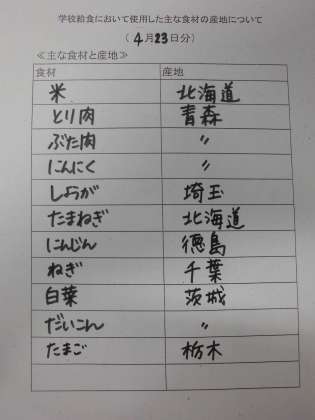 学校給食において使用した主な食材の産地について
（ 4月23日分）
≪主な食材と産地≫
食材 産地
米 北海道
とり肉 青森
ぶた肉 〃
にんにく 〃
しょうが 埼玉
たまねぎ 北海道
にんじん 徳島
ねぎ 千葉
白菜 茨城
だいこん 〃
たまご 栃木